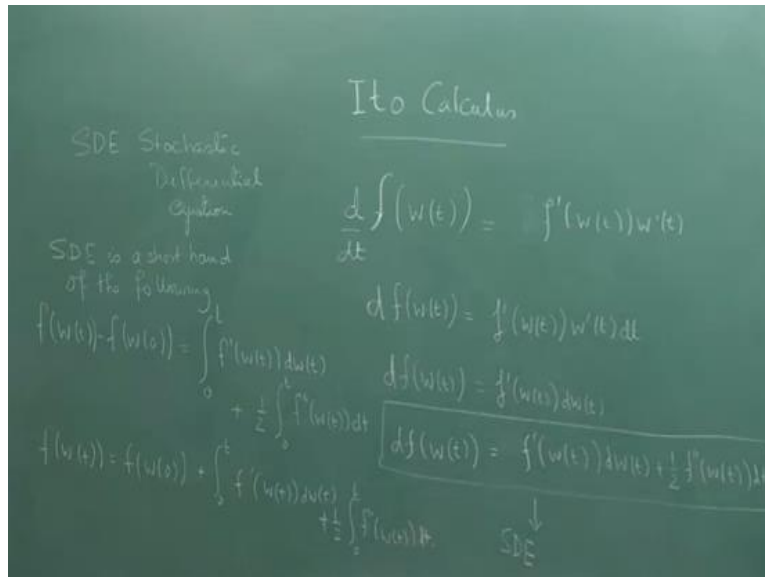 Ito Calculus
SDE Stochastic
Differential
Equation
SDE is a short hand
of the following
f(w(t))-f(w(0)) = ∫₀ᵗ f'(w(t)) dw(t)
+ 1/2 ∫₀ᵗ f''(w(t)) dt
f(w(t)) = f(w(0)) + ∫₀ᵗ f'(w(t)) dw(t)
+ 1/2 ∫₀ᵗ f''(w(t)) dt.
d/dt f(w(t)) = f'(w(t)) w'(t)
d f(w(t)) = f'(w(t)) w'(t) dt
df(w(t)) = f'(w(t)) dw(t)
df(w(t)) = f'(w(t)) dw(t) + 1/2 f''(w(t)) dt
↓
SDE